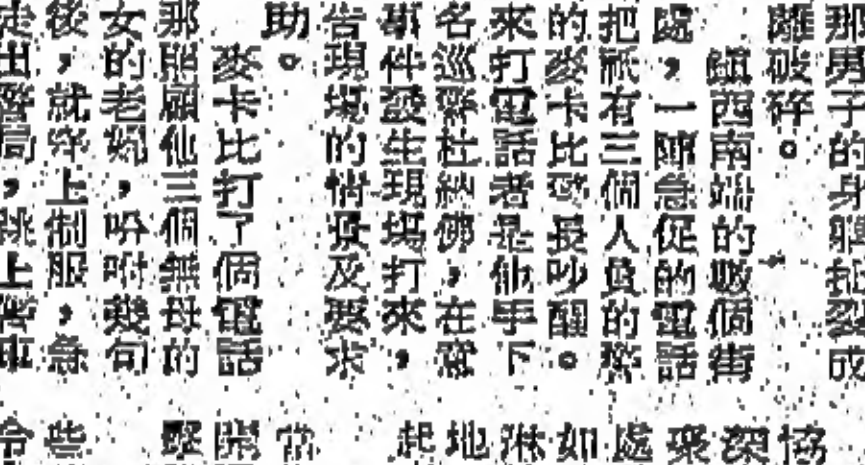 那男子的身軀拉裂成
離破碎。
鎮西南端的數個街
處，一陣急促的電話
把祇有三個人員的警
的麥卡比警長吵醒。
來打電話者是他手下
名巡察杜納佛，在
事件發生現場打來，
告現場的情景及要求
助。
麥卡比打了個電話
那照顧他三個無母的
女的老媽，吩咐幾句
後，就穿上制服，急
走出警局，跳上警車
協
深
衆
處
如
淋
地
起
當
開
些
令